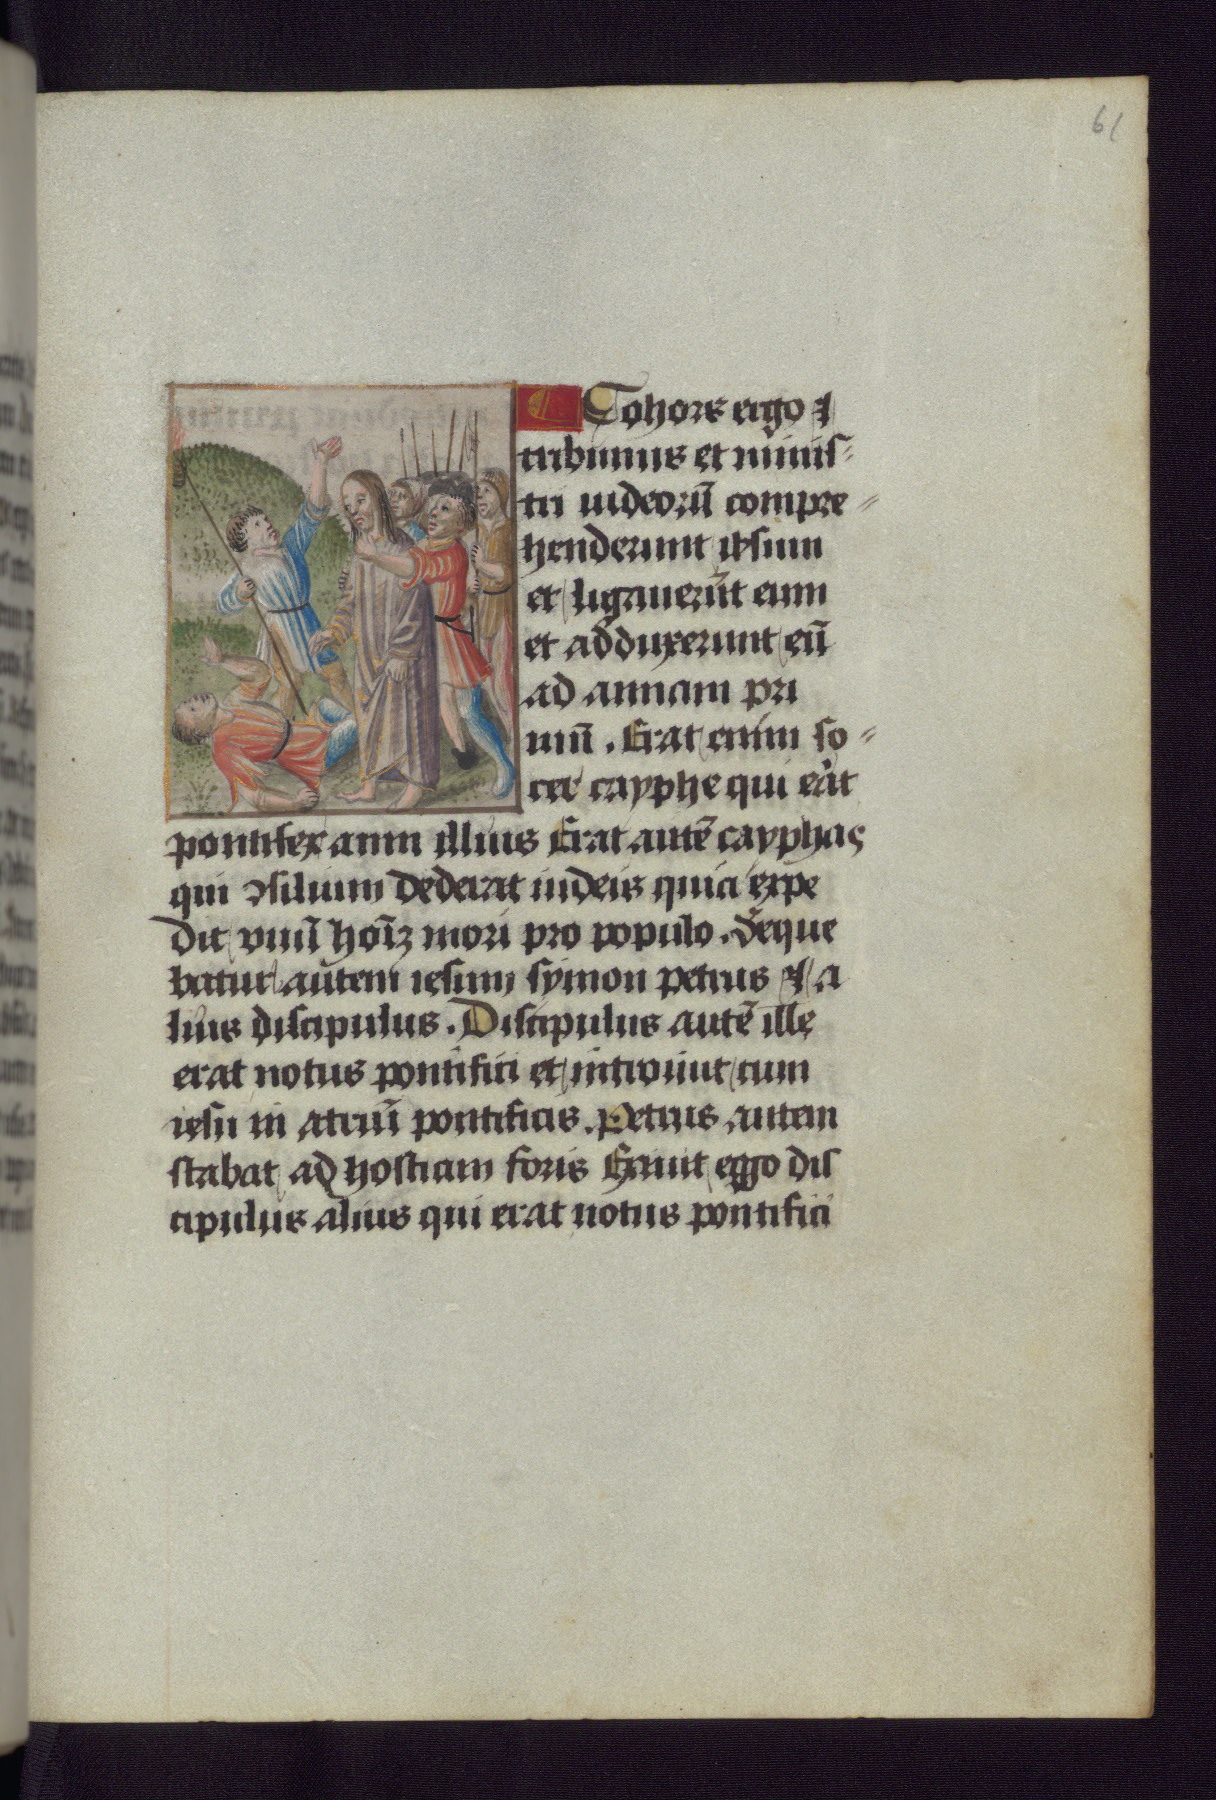 61
C Cohors ergo ⁊
tribunus et minis-
tri iudeorū compre-
henderunt ihesum
et ligauerūt eum
et adduxerunt eū
ad annam pri
mū. Erat enim so-
cer cayphe qui erat
pontifex anni illius Erat autē cayphas
qui ꝯsilium dederat iudeis quia expe
dit vnū hoīꝫ mori pro populo. Seque
batur autem iesum symon petrus ⁊ a
lius discipulus. Discipulus autē ille
erat notus pontifici et introiuit cum
iesu in atriū pontificis. Petrus autem
stabat ad hostiam foris Exiuit eggo dis
cipulus alius qui erat notus pontifici